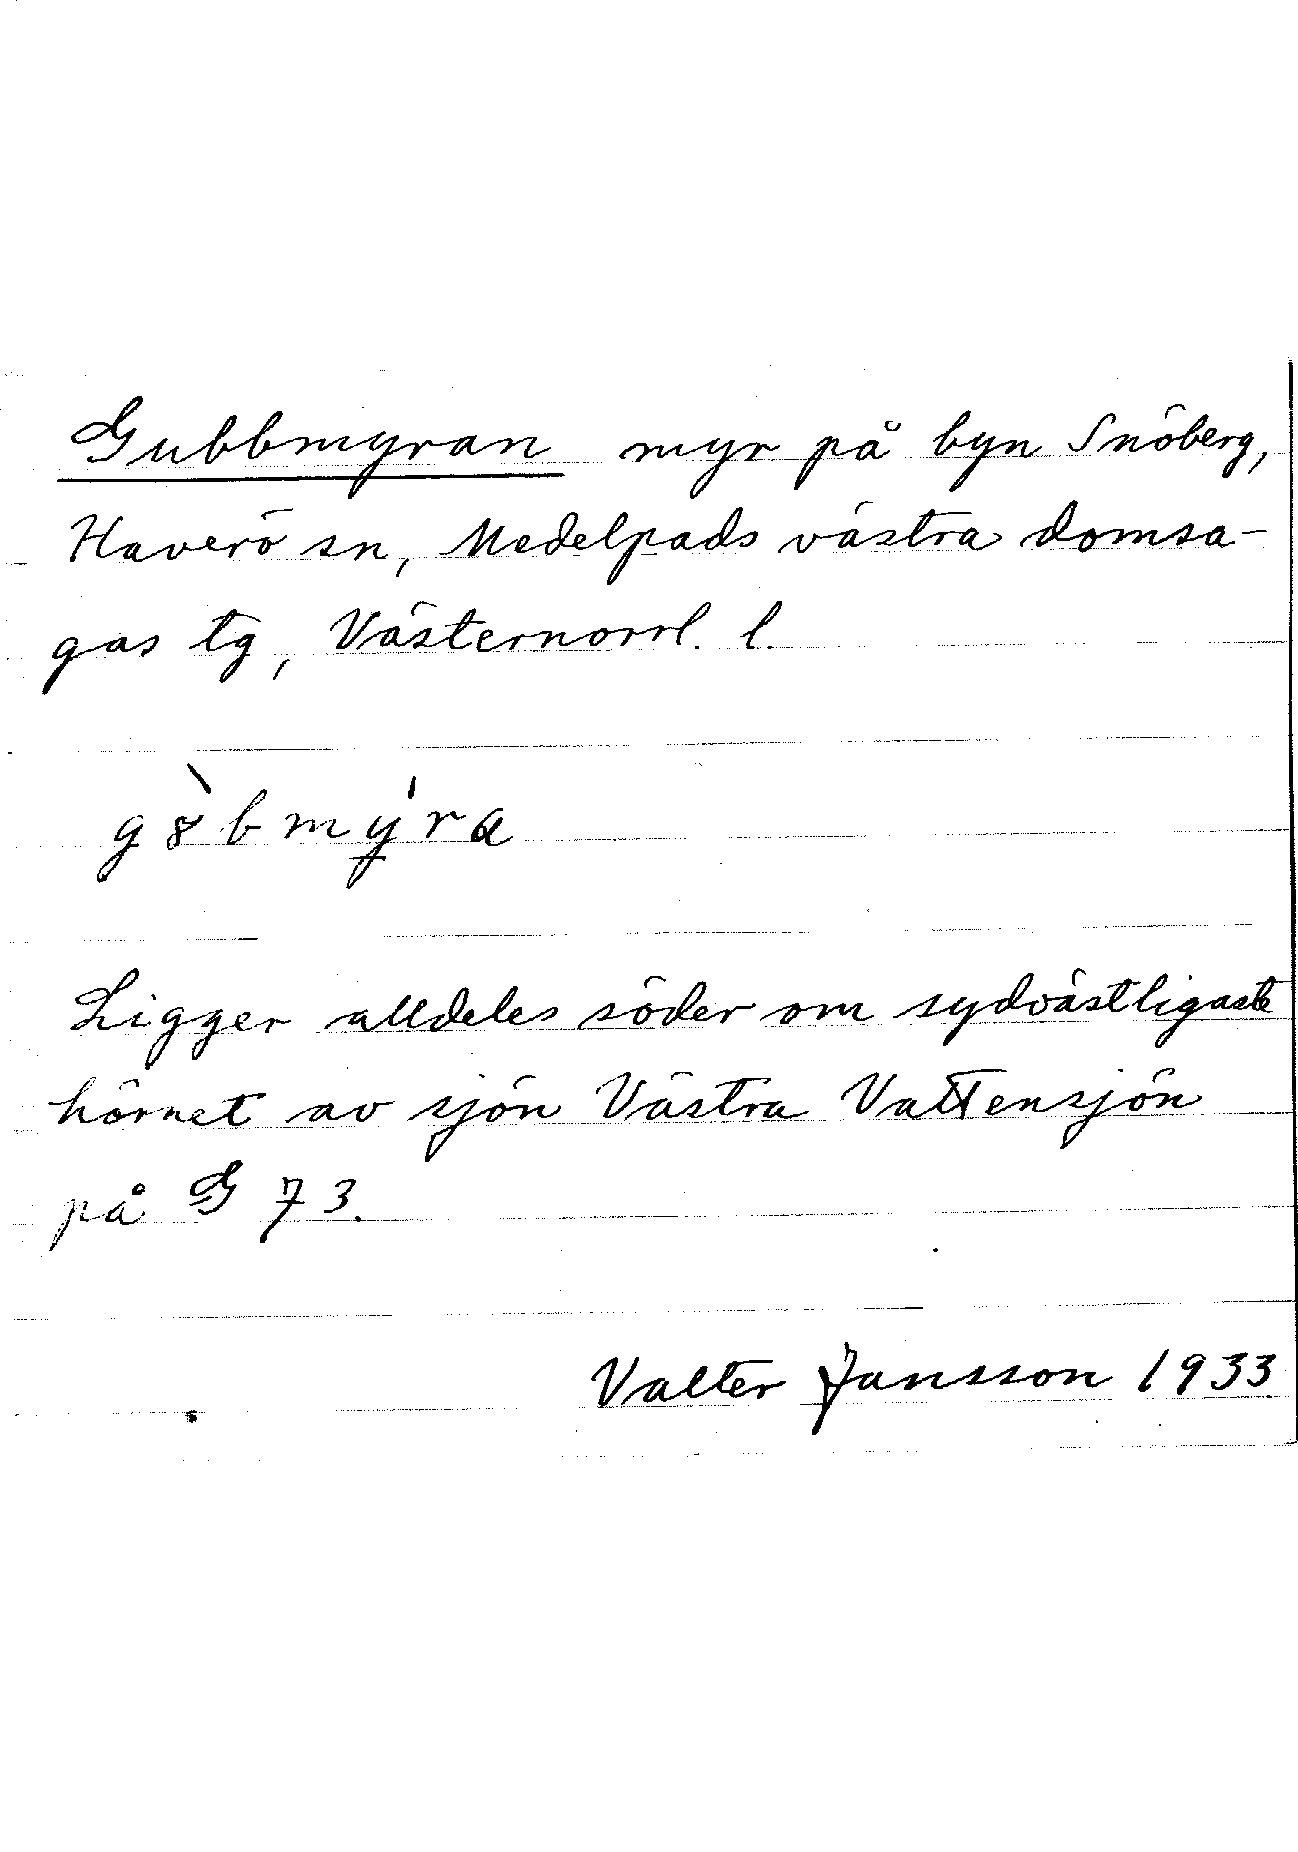 Gubbmyran myr på byn Snöberg,
Haverö sn, Medelpads västra domsa-
gas tg, Västernorrl. l.
g8̀bmýra
Ligger alldeles söder om sydvästligaste
hörnet av sjön Västra Vattensjön
på G 73.
Valter Jansson 1933